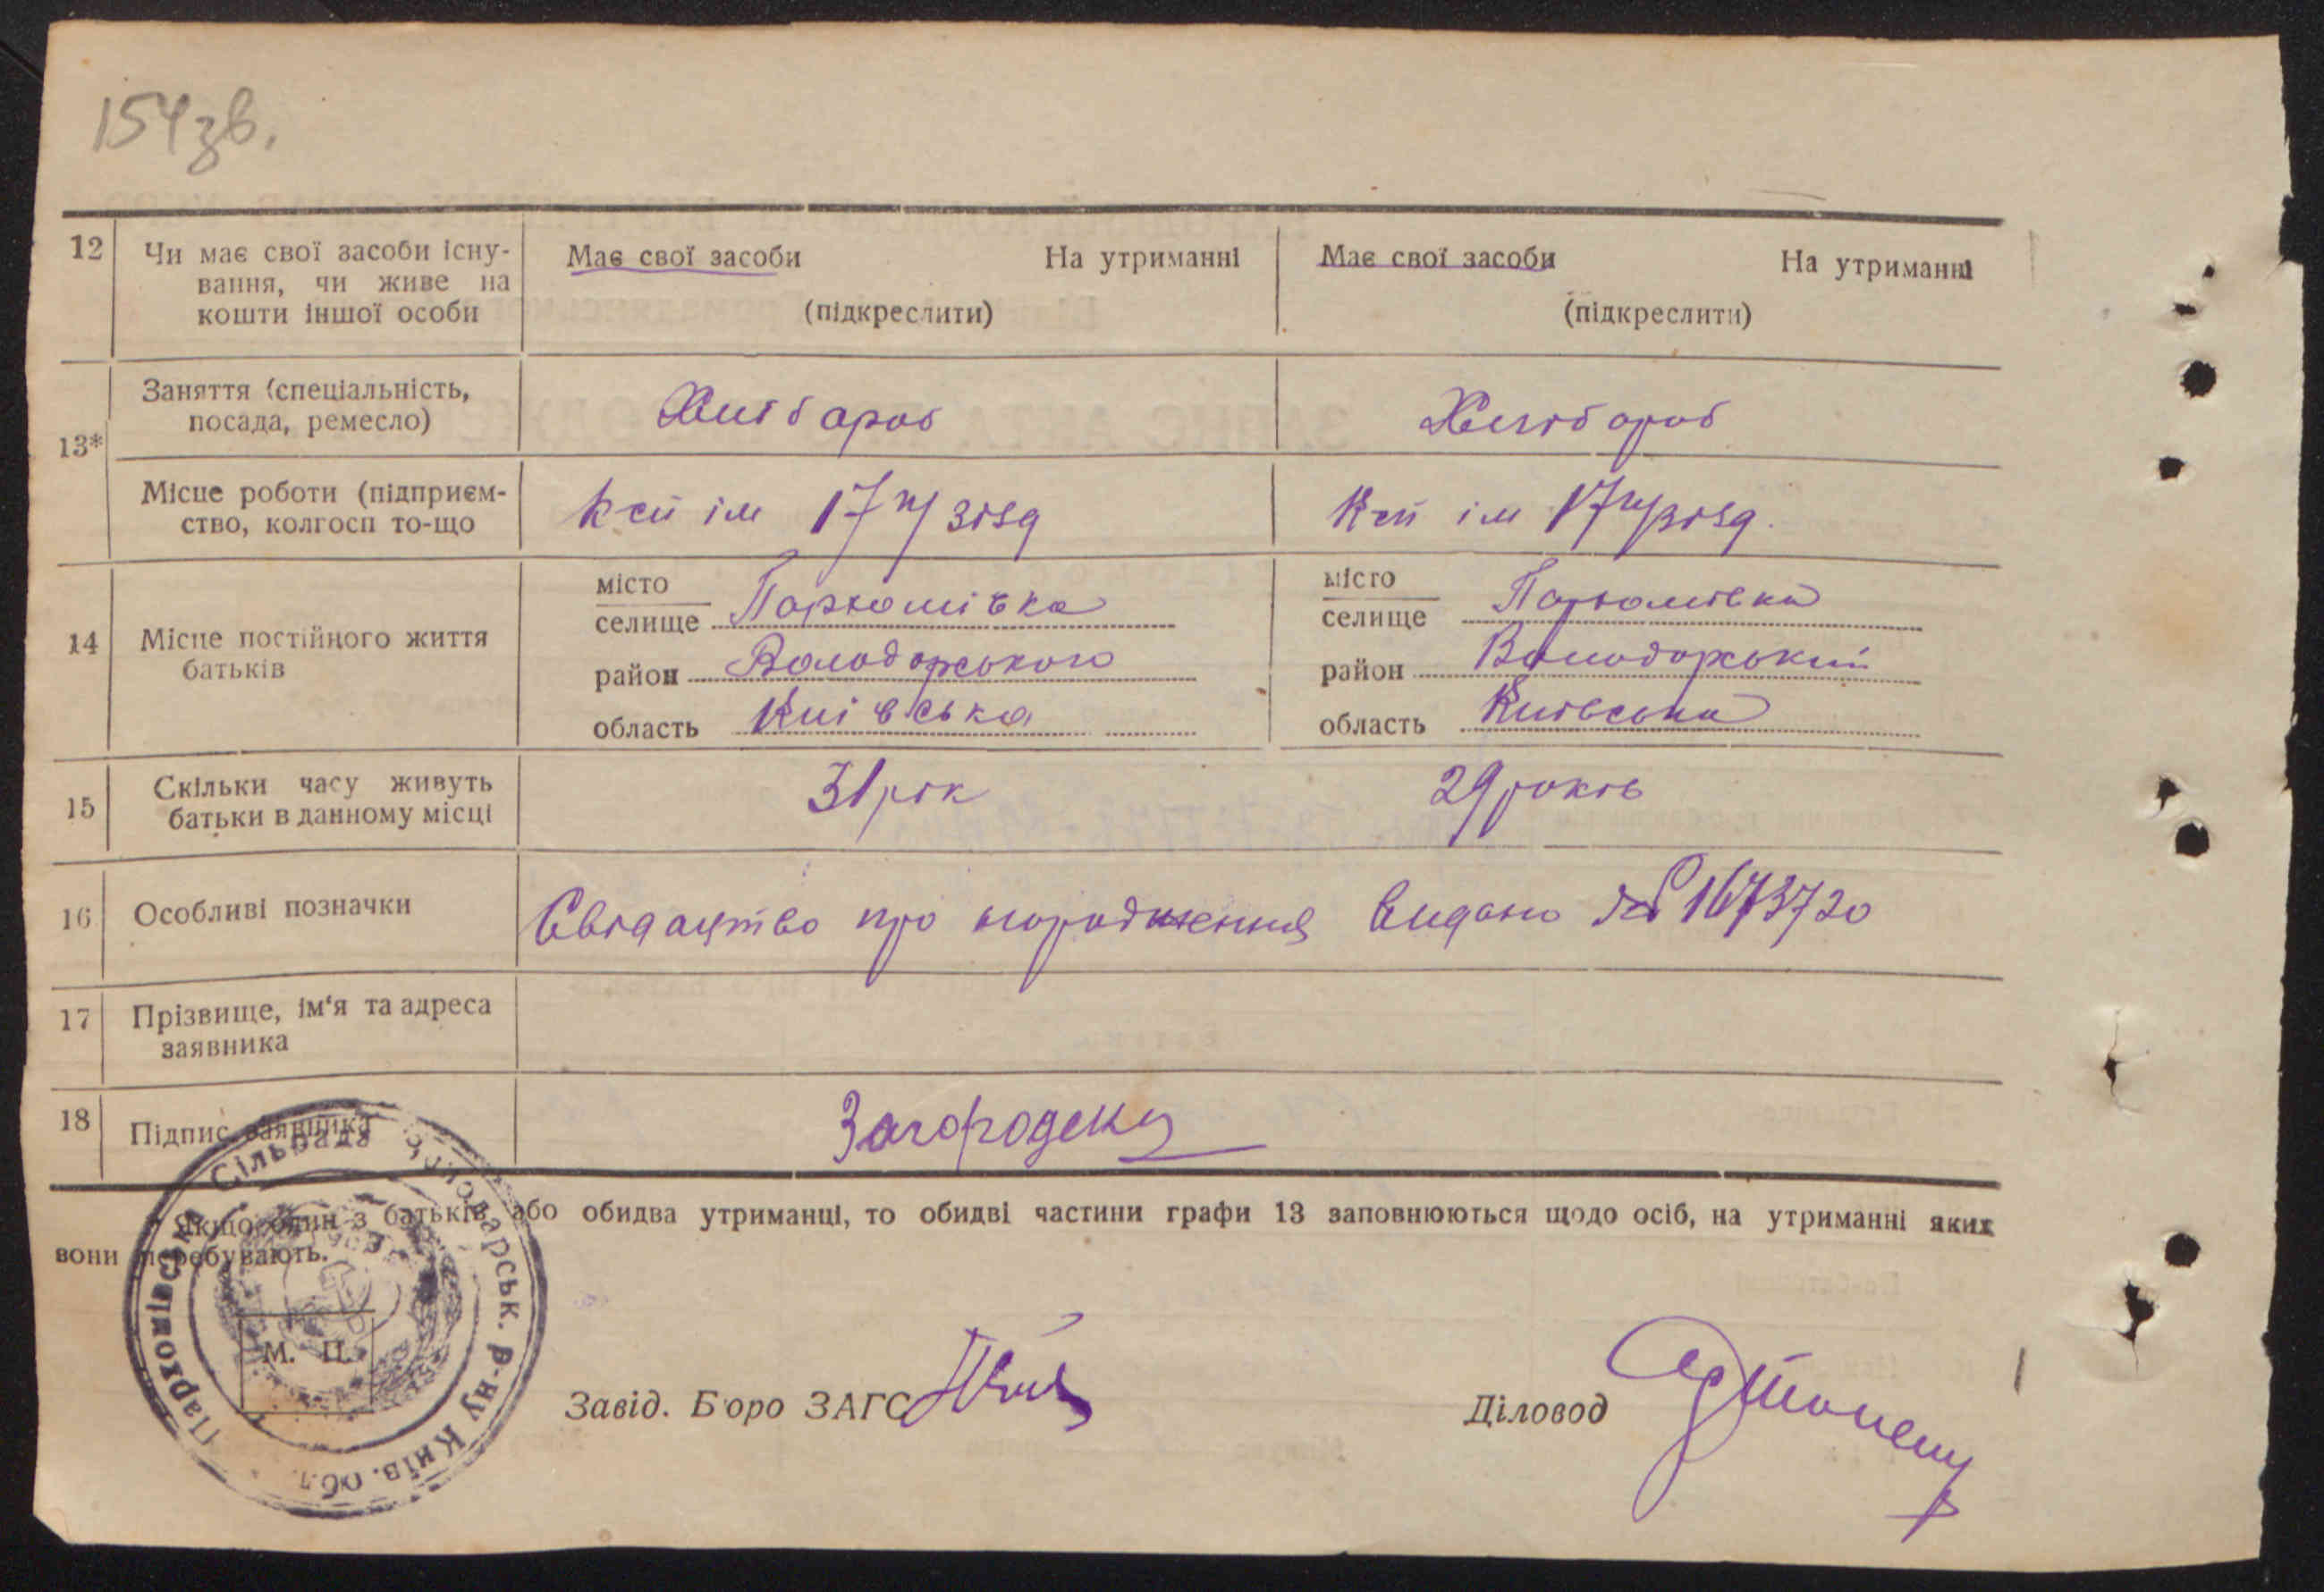 154зв.
12 Чи має свої засоби існу-
вання, чи живе на
кошти іншої особи
Має свої засоби На утриманні
(підкреслити)
Має свої засоби На утриманні
(підкреслити)
13*
Заняття (спеціальність,
посада, ремесло)
Хлібароб
Хлібороб
Місце роботи (підприєм-
ство, колгосп то-що
ім 17 п/зізд
ім 17 п/зізд.
14 Місце постійного життя
батьків
місто
селище Пархомівка
район Володарського
область Київська
місто
селище Пархомівка
район Володарський
область Київська
15 Скільки часу живуть
батьки в данному місці
31 рік
29 років
16 Особливі позначки
Свідацтво про народження видано № 1673720
17 Прізвище, ім'я та адреса
заявника
18 Підпис заявника
* Якщо один з батьків або обидва утриманці, то обидві частини графи 13 заповнюються щодо осіб, на утриманні яких
вони перебувають.
Пархомівська Сільрада Володарськ. р-ну Київ. обл.
М. П.
Завід. Бюро ЗАГС
Діловод